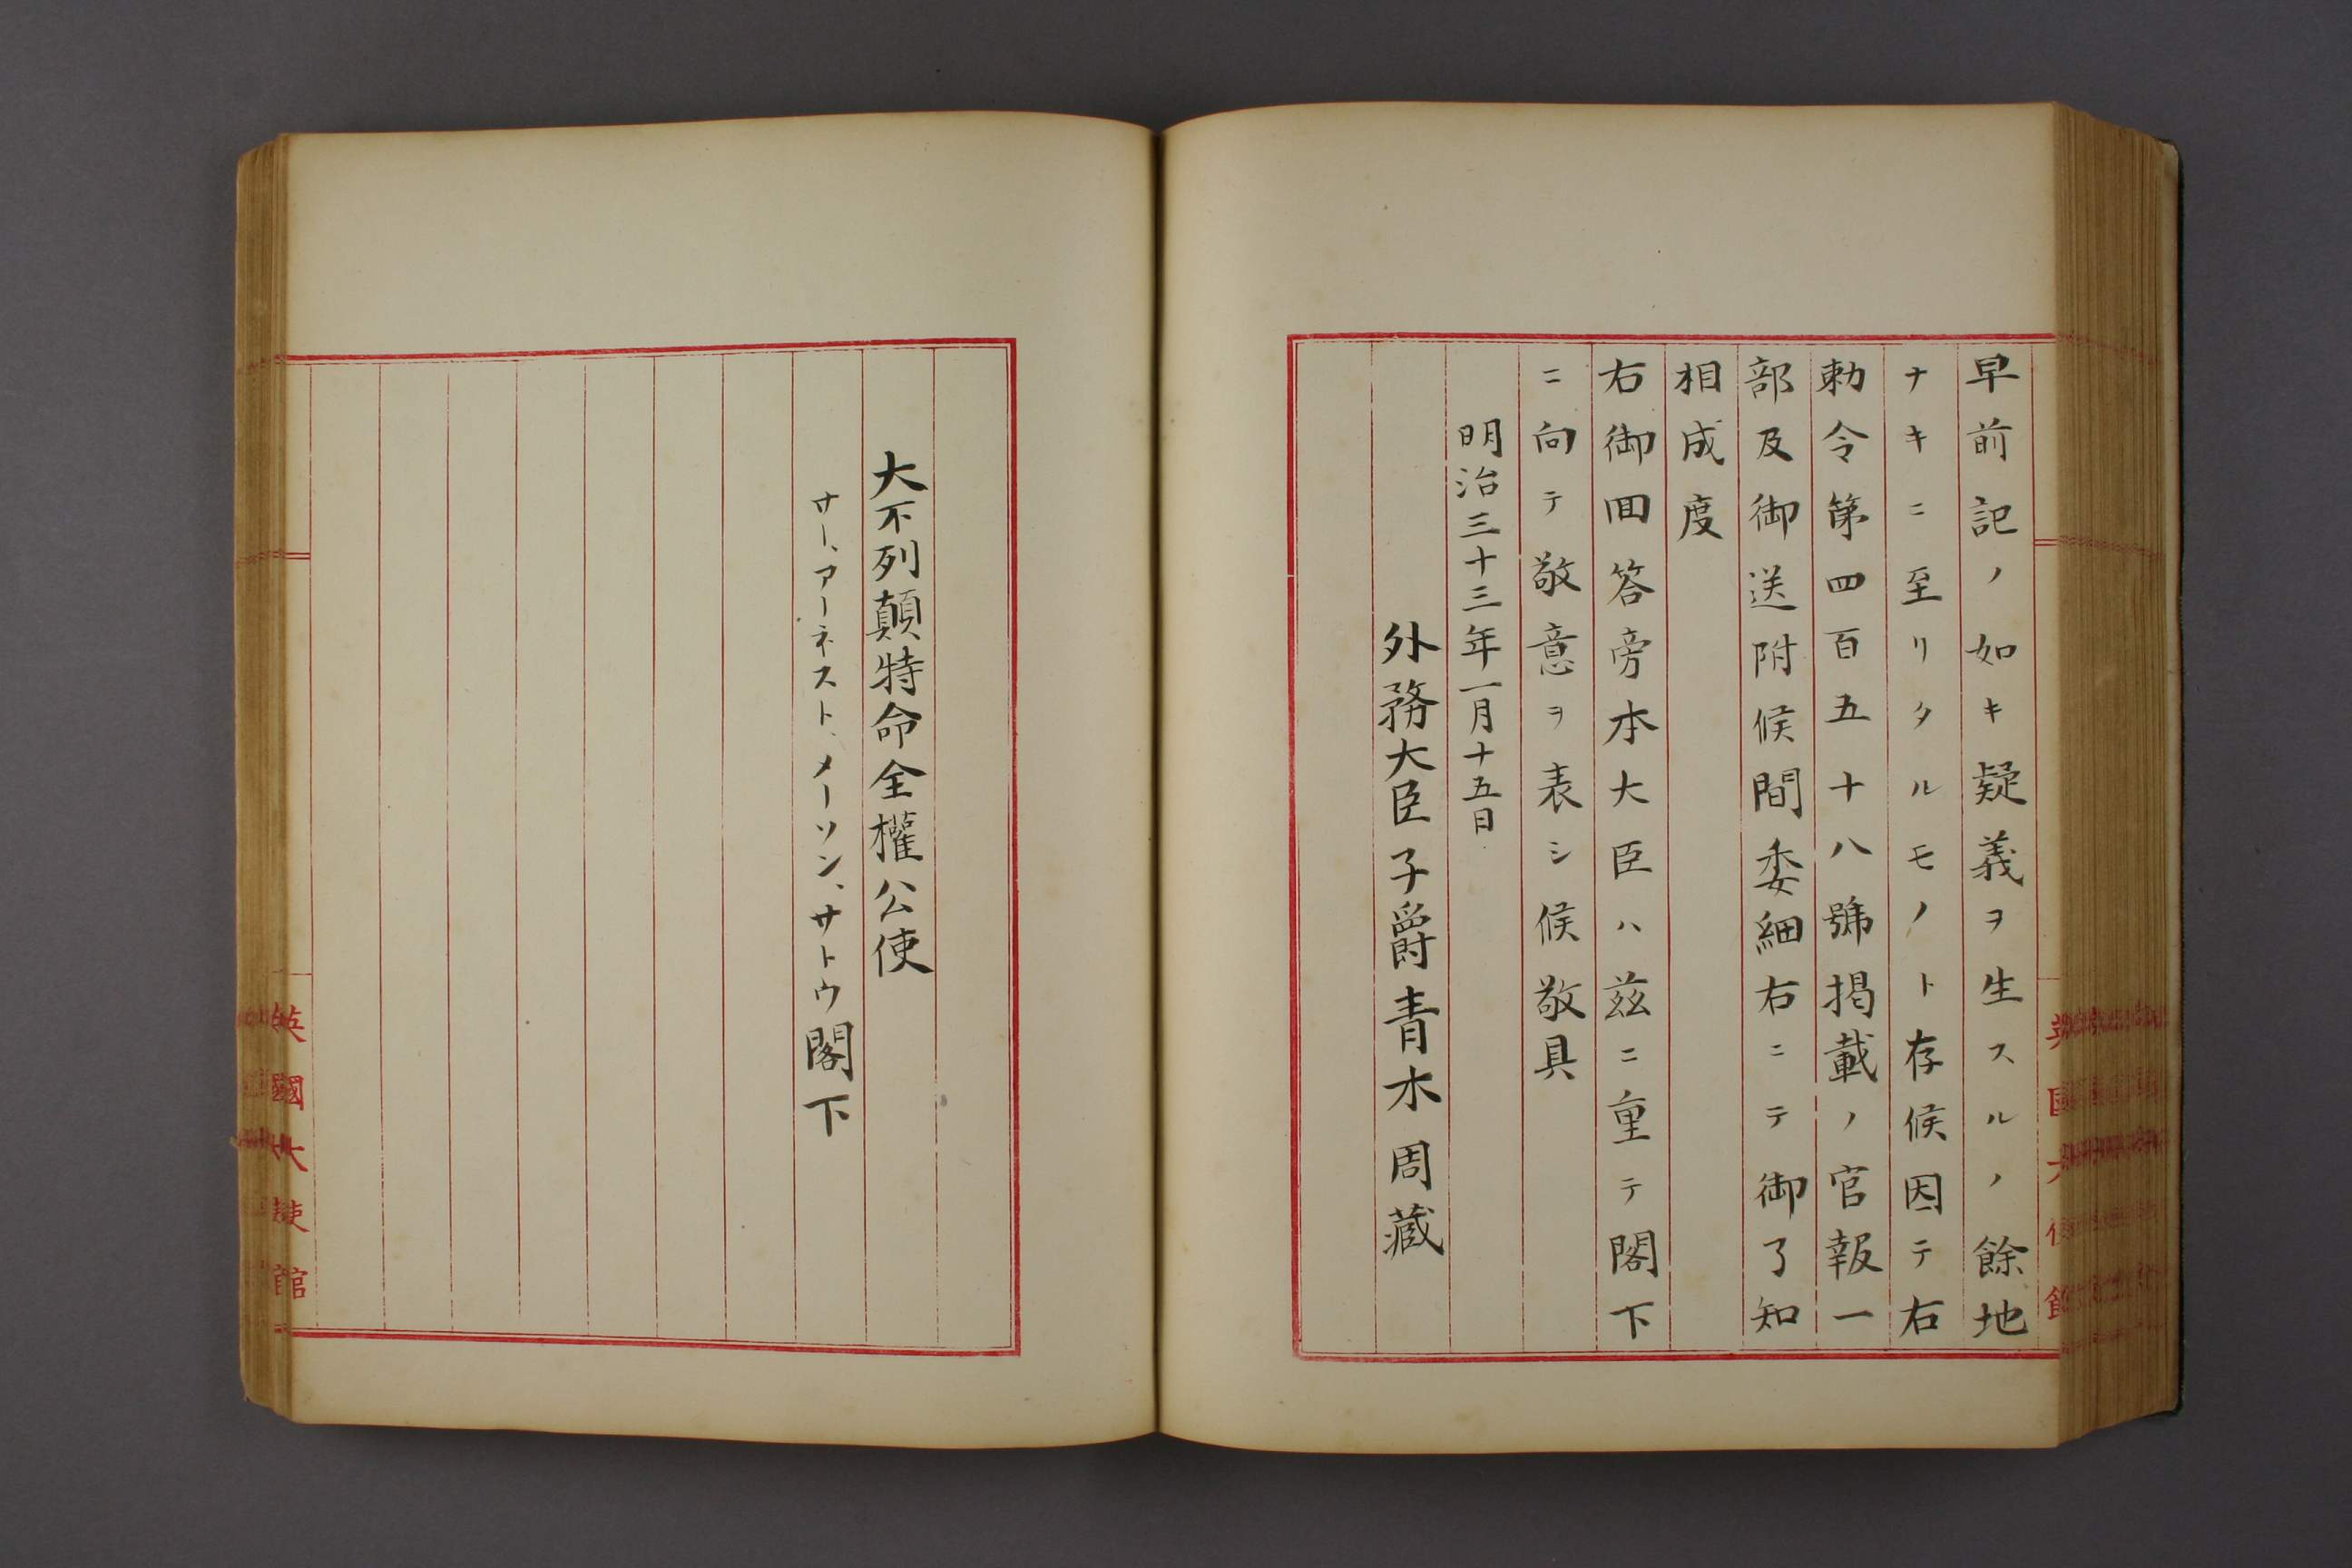 早前記ノ如キ疑義ヲ生スルノ餘地
ナキニ至リタルモノト存候因テ右
勅令第四百五十八號掲載ノ官報一
部及御送附候間委細右ニテ御了知
相成度
右御回答旁本大臣ハ茲ニ重テ閣下
ニ向テ敬意ヲ表シ候敬具
明治三十三年一月十五日
外務大臣子爵青木周藏
大不列顛特命全權公使
サー、アーネスト、メーソン、サトウ閣下
英國大使館